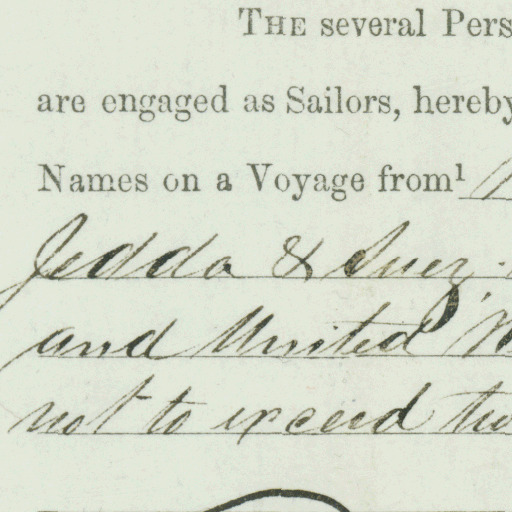 THE several Pers
are engaged as Sailors, hereby
Names on a Voyage from¹
Jedda & Suez
and United
not to exceed two